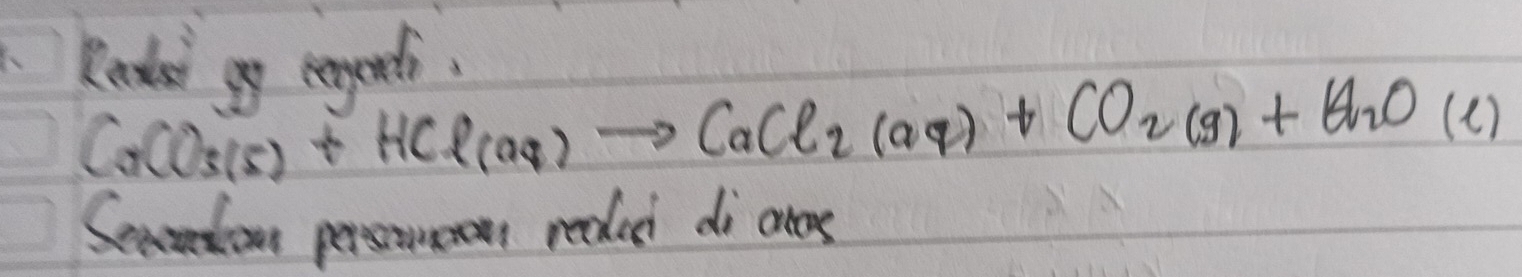 Reaksi yg terjadi.
CaCO3(s) + HCl(aq) → CaCl2 (aq) + CO2 (g) + H2O (l)
Setarakan persamaan reaksi di atas